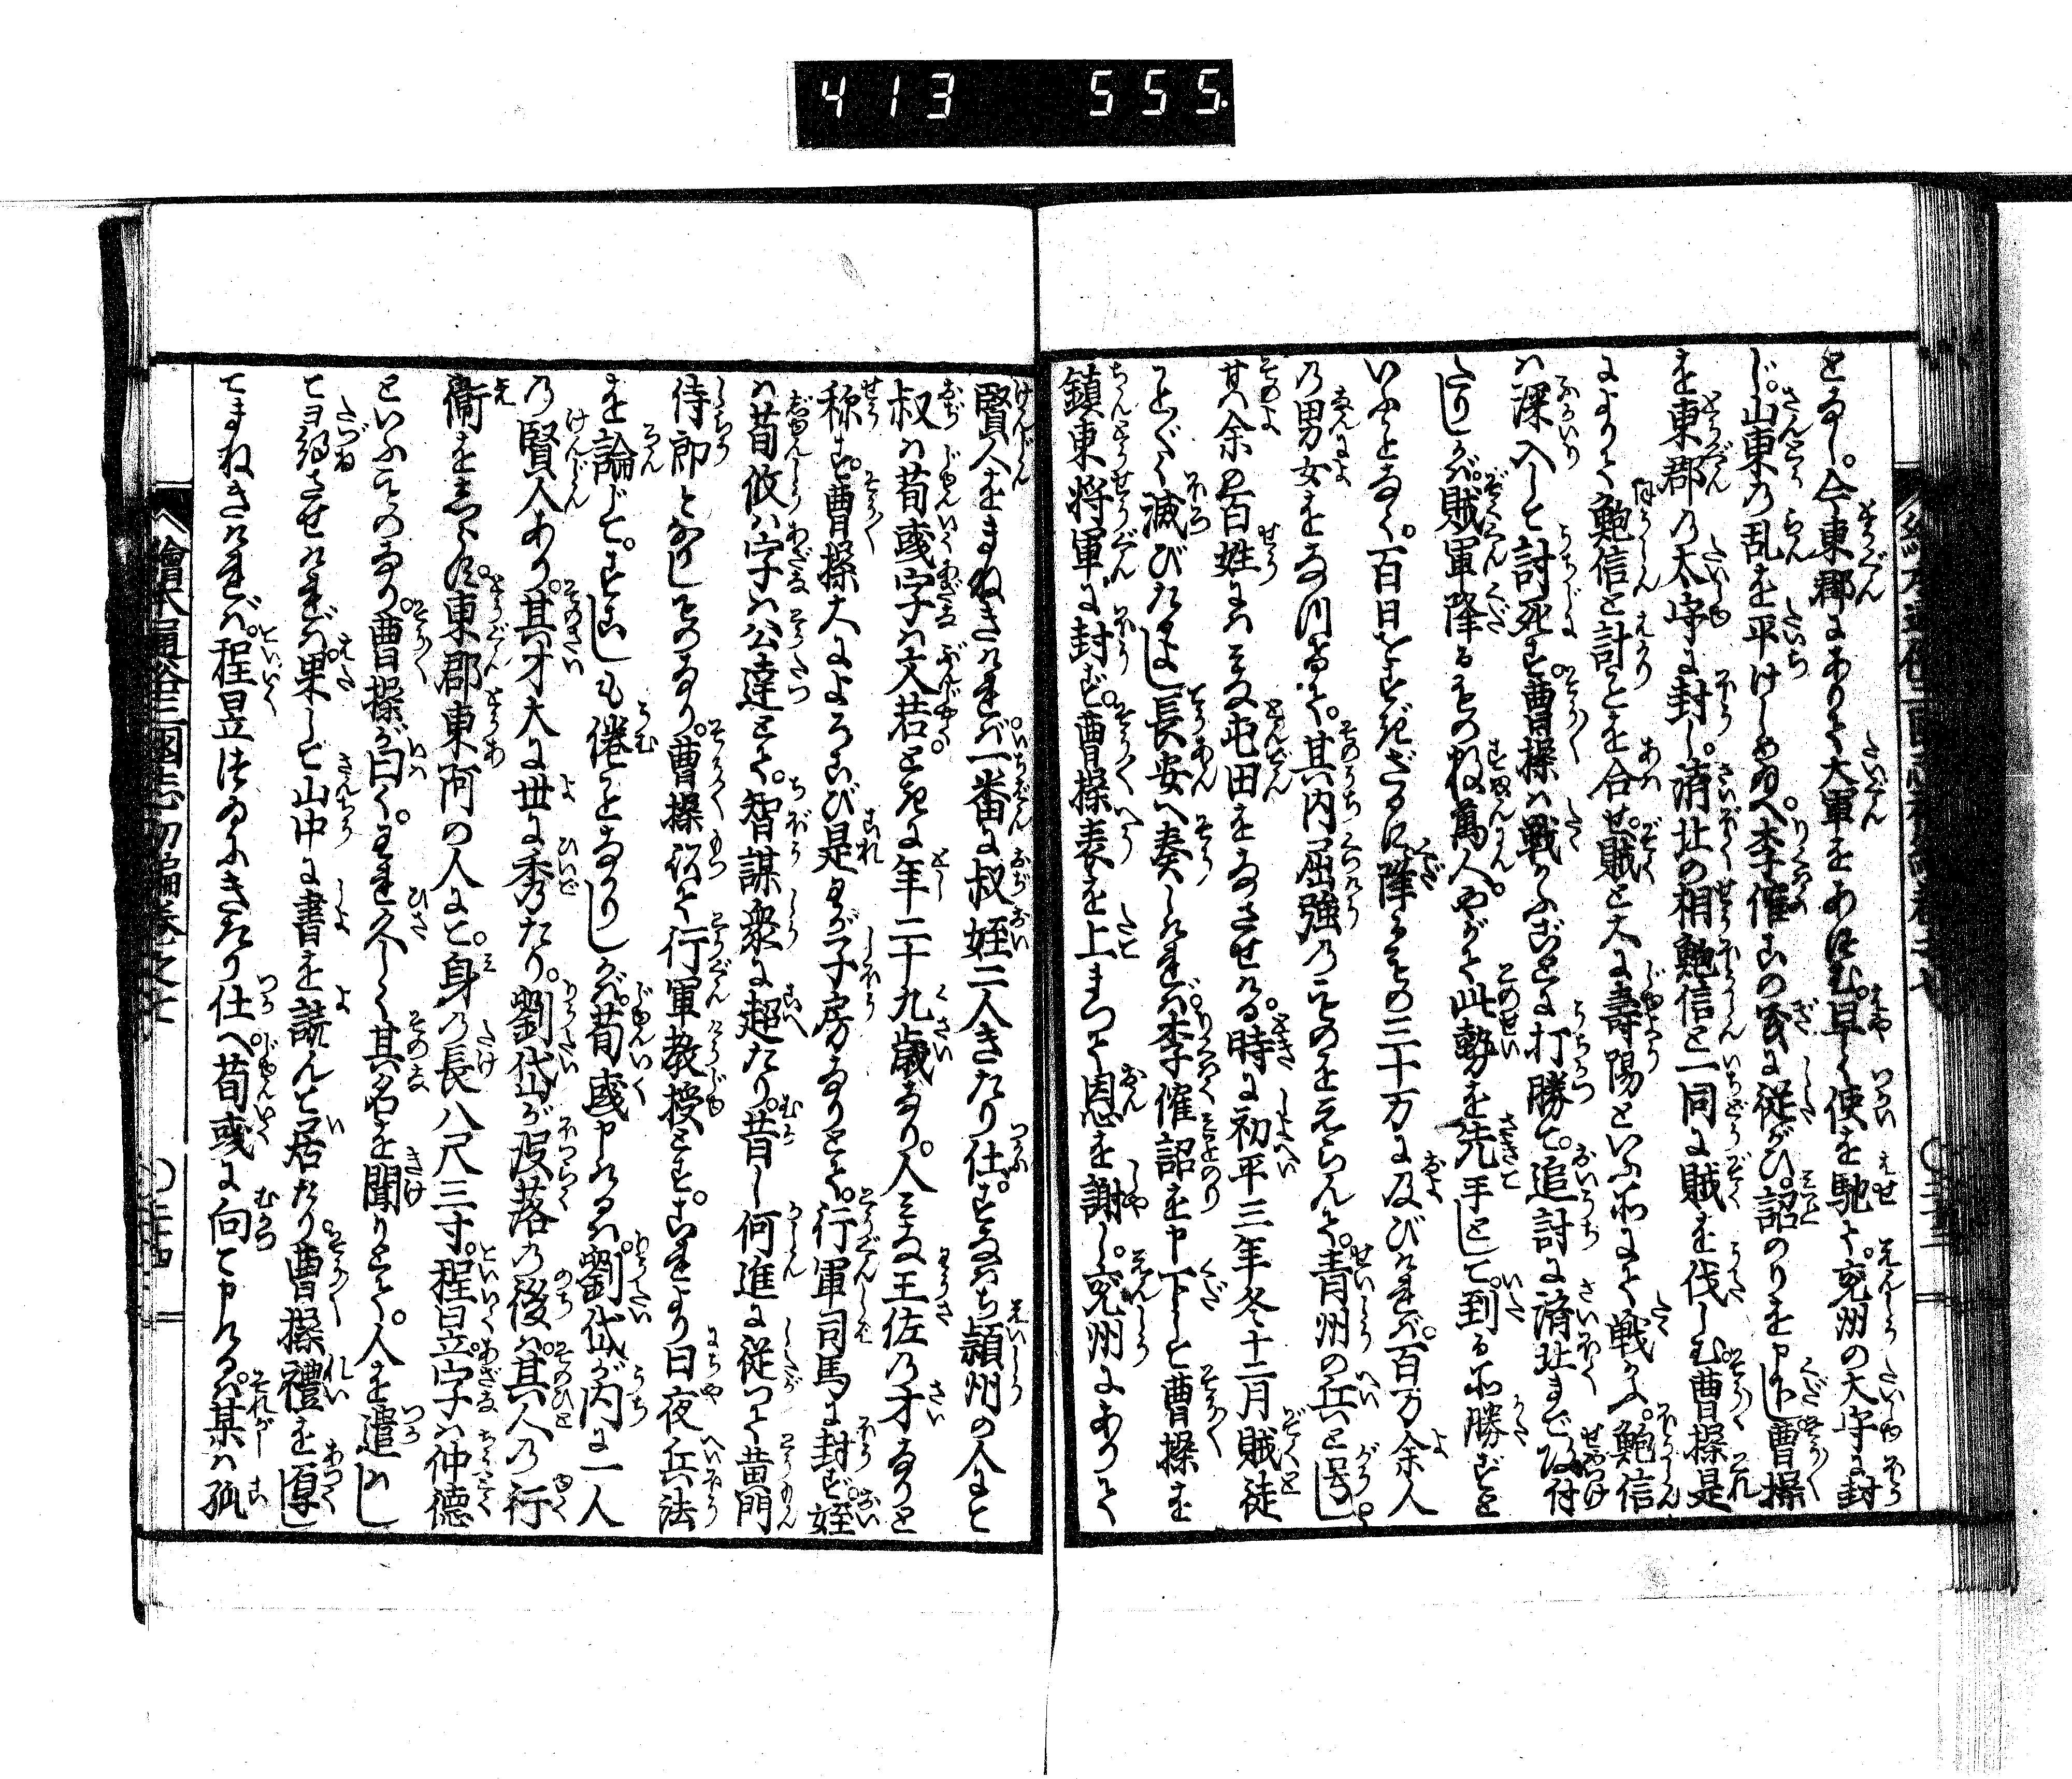 413 555.
となし。今東郡にありて大軍をあつむ。早く使を馳て。兗州の大守に封
じ。山東の乱を平けしめ給へ。李傕この義に従がひ。詔のりを申下し。曹操
を東郡の太守に封し。済北の相鮑信と一同に賊を伐しむ。曹操是
によりて鮑信と計ことを合せ。賊と大に寿陽といふ所にて戦かふ。鮑信
は深入して討死す。曹操は戦かふごとに打勝て。追討に済北まで
たりしかば。賊軍降るもの数萬人。やがて此勢を先手として。到る所勝ずと
いふことなく。百日をすぎざるに。降るもの三十万に及びければ。百万余人
の男女をなつけて。其内屈強のものをえらんで。青州の兵と号し。
其余の百姓には みな屯田をなさせける。時に初平三年冬十二月賊徒
ことごとく滅びたりし 長安へ奏しければ。李傕詔を申下して曹操を
鎮東将軍に封ず。曹操表を上まつて恩を謝し。兗州にありて
賢人をまねきければ。一番に叔姪二人きたり仕。すなはち潁州の人にて
叔は荀彧字は文若とき に年二十九歳なり。人みな王佐の才なりと
称す。曹操大によろこび是わが子房なりとて。行軍司馬に封ず。姪
は荀攸字は公達とて。智謀衆に超たり。昔し何進に従つて黄門
侍郎となりしものなり。曹操以て行軍教授とす。これより日夜兵法
を論じて。すこしも倦ことなかりしが。荀彧申けるは。劉岱が内に一人
の賢人あり。其才大に世に秀のたり。劉岱が没落の後は其人の行
衛をしらず。東郡東阿の人にて。身の長八尺三寸。程昱字は仲徳
といふものなり。曹操が曰く。われ久しく其名を聞りとて。人を遣はし
てヨ尋させければ。果して山中に書を読んで居たり。曹操禮を厚し
てまねきければ。程昱つゐにきたり仕へ。荀彧に向て申ける。某は孤
繪本通俗三國志初編巻之七